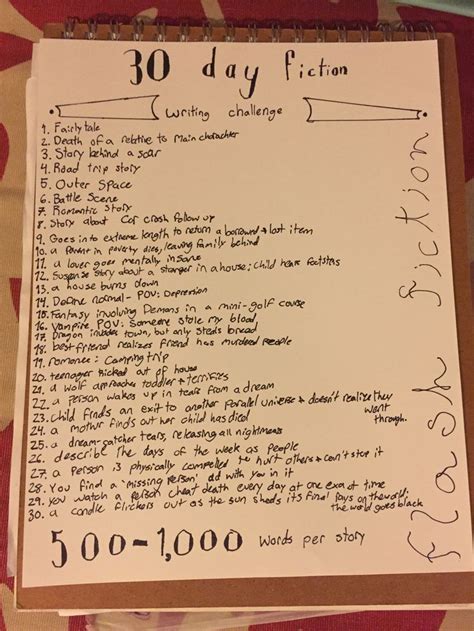 30 day fiction
writing challenge
1. Fairly tale
2. Death of a relative to main charachter
3. Story behind a scar
4. Road trip story
5. Outer Space
6. Battle Scene
7. Romantic story
8. Story about Car crash follow up
9. Goes into extreme length to return a borrowed + lost item
10. a parent in poverty dies, leaving family behind
11. a lover goes mentally insane
12. Suspense story about a stranger in a house; child hears footsteps
13. a house burns down
14. Define normal - POV: Depression
15. Fantasy involving Demons in a mini-golf course
16. Vampire POV: Someone stole my blood
17. Dragon invades town, but only steals bread
18. best friend realizes friend has murdered people
19. romance: Camping trip
20. teenager kicked out of house
21. a wolf approaches toddler + terrifies
22. a person wakes up in tears from a dream
23. Child finds an exit to another parallel universe + doesn't realize they went through.
24. a mother finds out her child has died
25. a dream-catcher tears, releasing all nightmares
26. describe the days of the week as people
27. a person is physically compelled to hurt others + can't stop it
28. You find a 'missing person' ad with you in it
29. you watch a person cheat death every day at one exact time
30. a candle flickers out as the sun sheds its final rays on the world; the world goes black
500-1,000 words per story
flash fiction